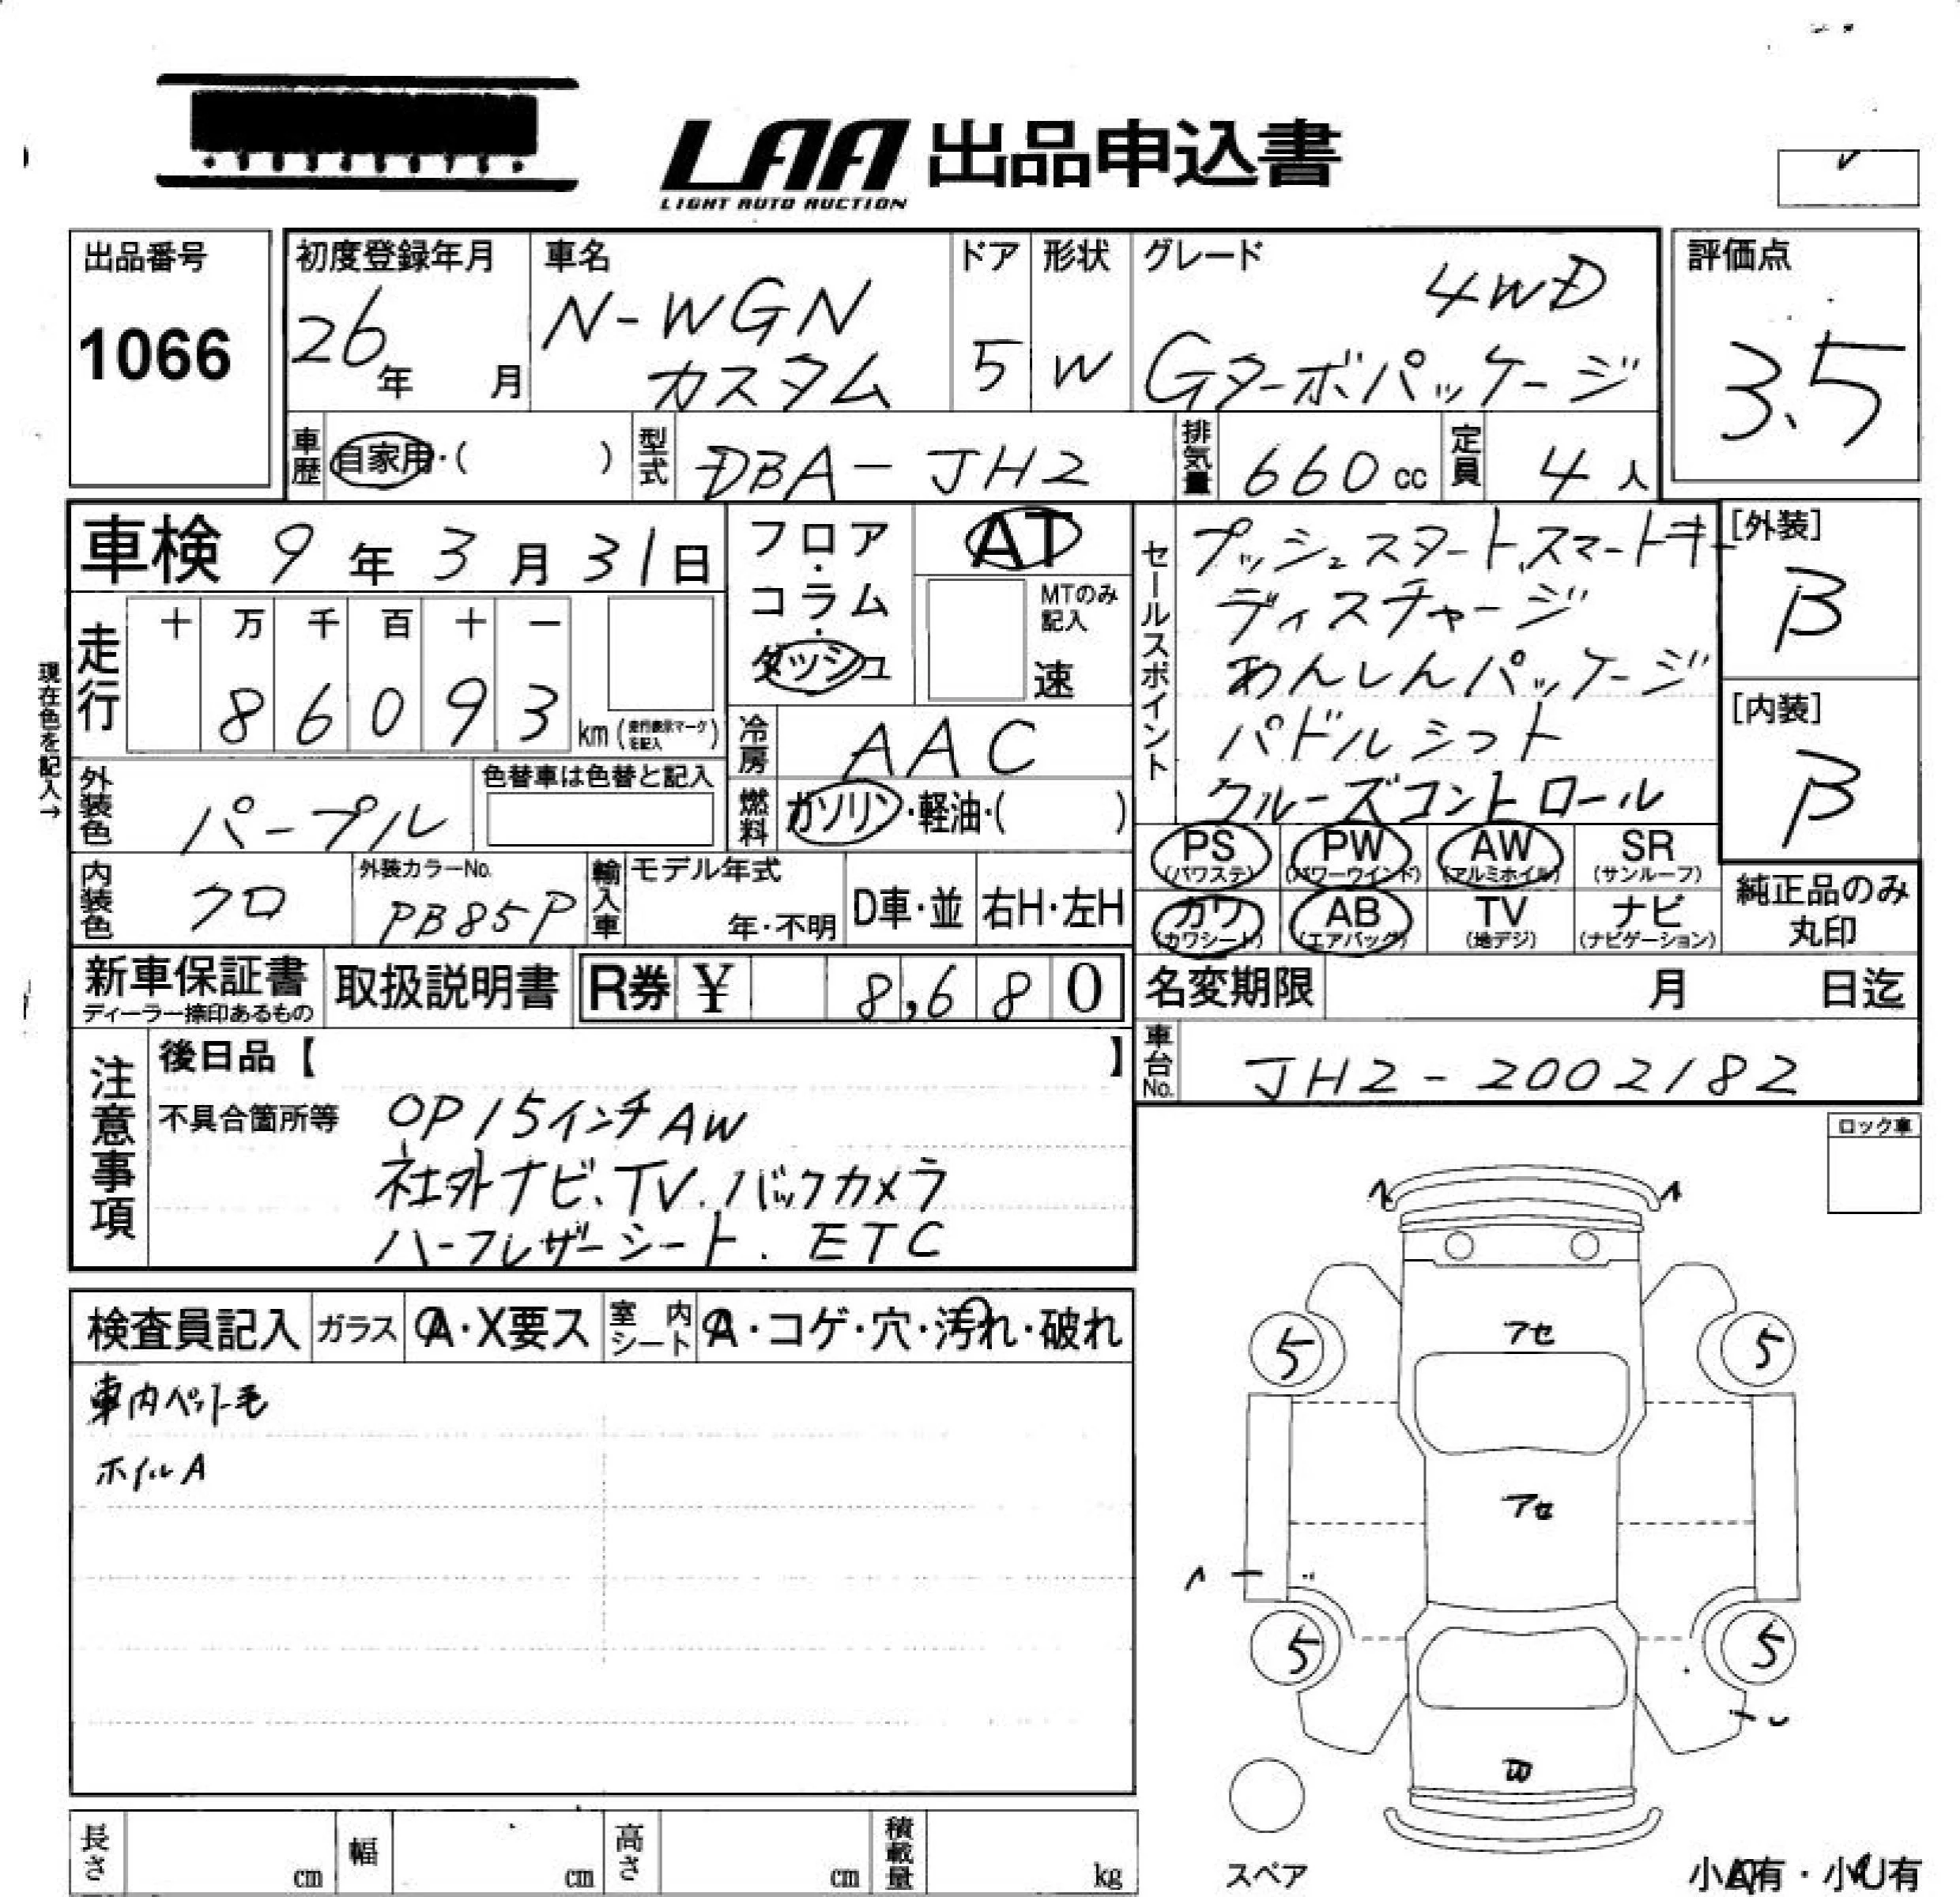 LAA 出品申込書
LIGHT AUTO AUCTION
出品番号
1066
初度登録年月
26年 月
車名
N-WGN
カスタム
ドア
5
形状
W
グレード
4WD
Gターボパッケージ
評価点
3.5
車歴 自家用・( )
型式 DBA-JH2
排気量 660cc
定員 4人
車検 9年3月31日
フロア・コラム・ダッシュ
AT
MTのみ記入
速
走行
十 万 千 百 十 一
8 6 0 9 3 km
現在色を記入→
冷房 AAC
外装色 パープル
色替車は色替と記入
燃料 ガソリン・軽油・( )
内装色 クロ
外装カラーNo.
PB85P
輸入車 モデル年式
年・不明
D車・並
右H・左H
セールスポイント
プッシュスタート、スマートキー
ディスチャージ
あんしんパッケージ
パドルシフト
クルーズコントロール
[外装]
B
[内装]
B
PS (パワステ)
PW (パワーウインド)
AW (アルミホイル)
SR (サンルーフ)
カワ (カワシート)
AB (エアバッグ)
TV (地デジ)
ナビ (ナビゲーション)
純正品のみ
丸印
新車保証書
ディーラー捺印あるもの
取扱説明書
R券 ¥ 8,680
名変期限 月 日迄
車台No. JH2-2002182
注意事項
後日品【 】
不具合箇所等 OP15インチAW
社外ナビ、TV.バックカメラ
ハーフレザーシート. ETC
ロック車
検査員記入
ガラス A・X要ス
室内シート A・コゲ・穴・汚れ・破れ
車内ペット毛
ホイルA
アセ
5 5
アセ
5 5
スペア
小A有・小U有
長さ cm
幅 cm
高さ cm
積載量 kg